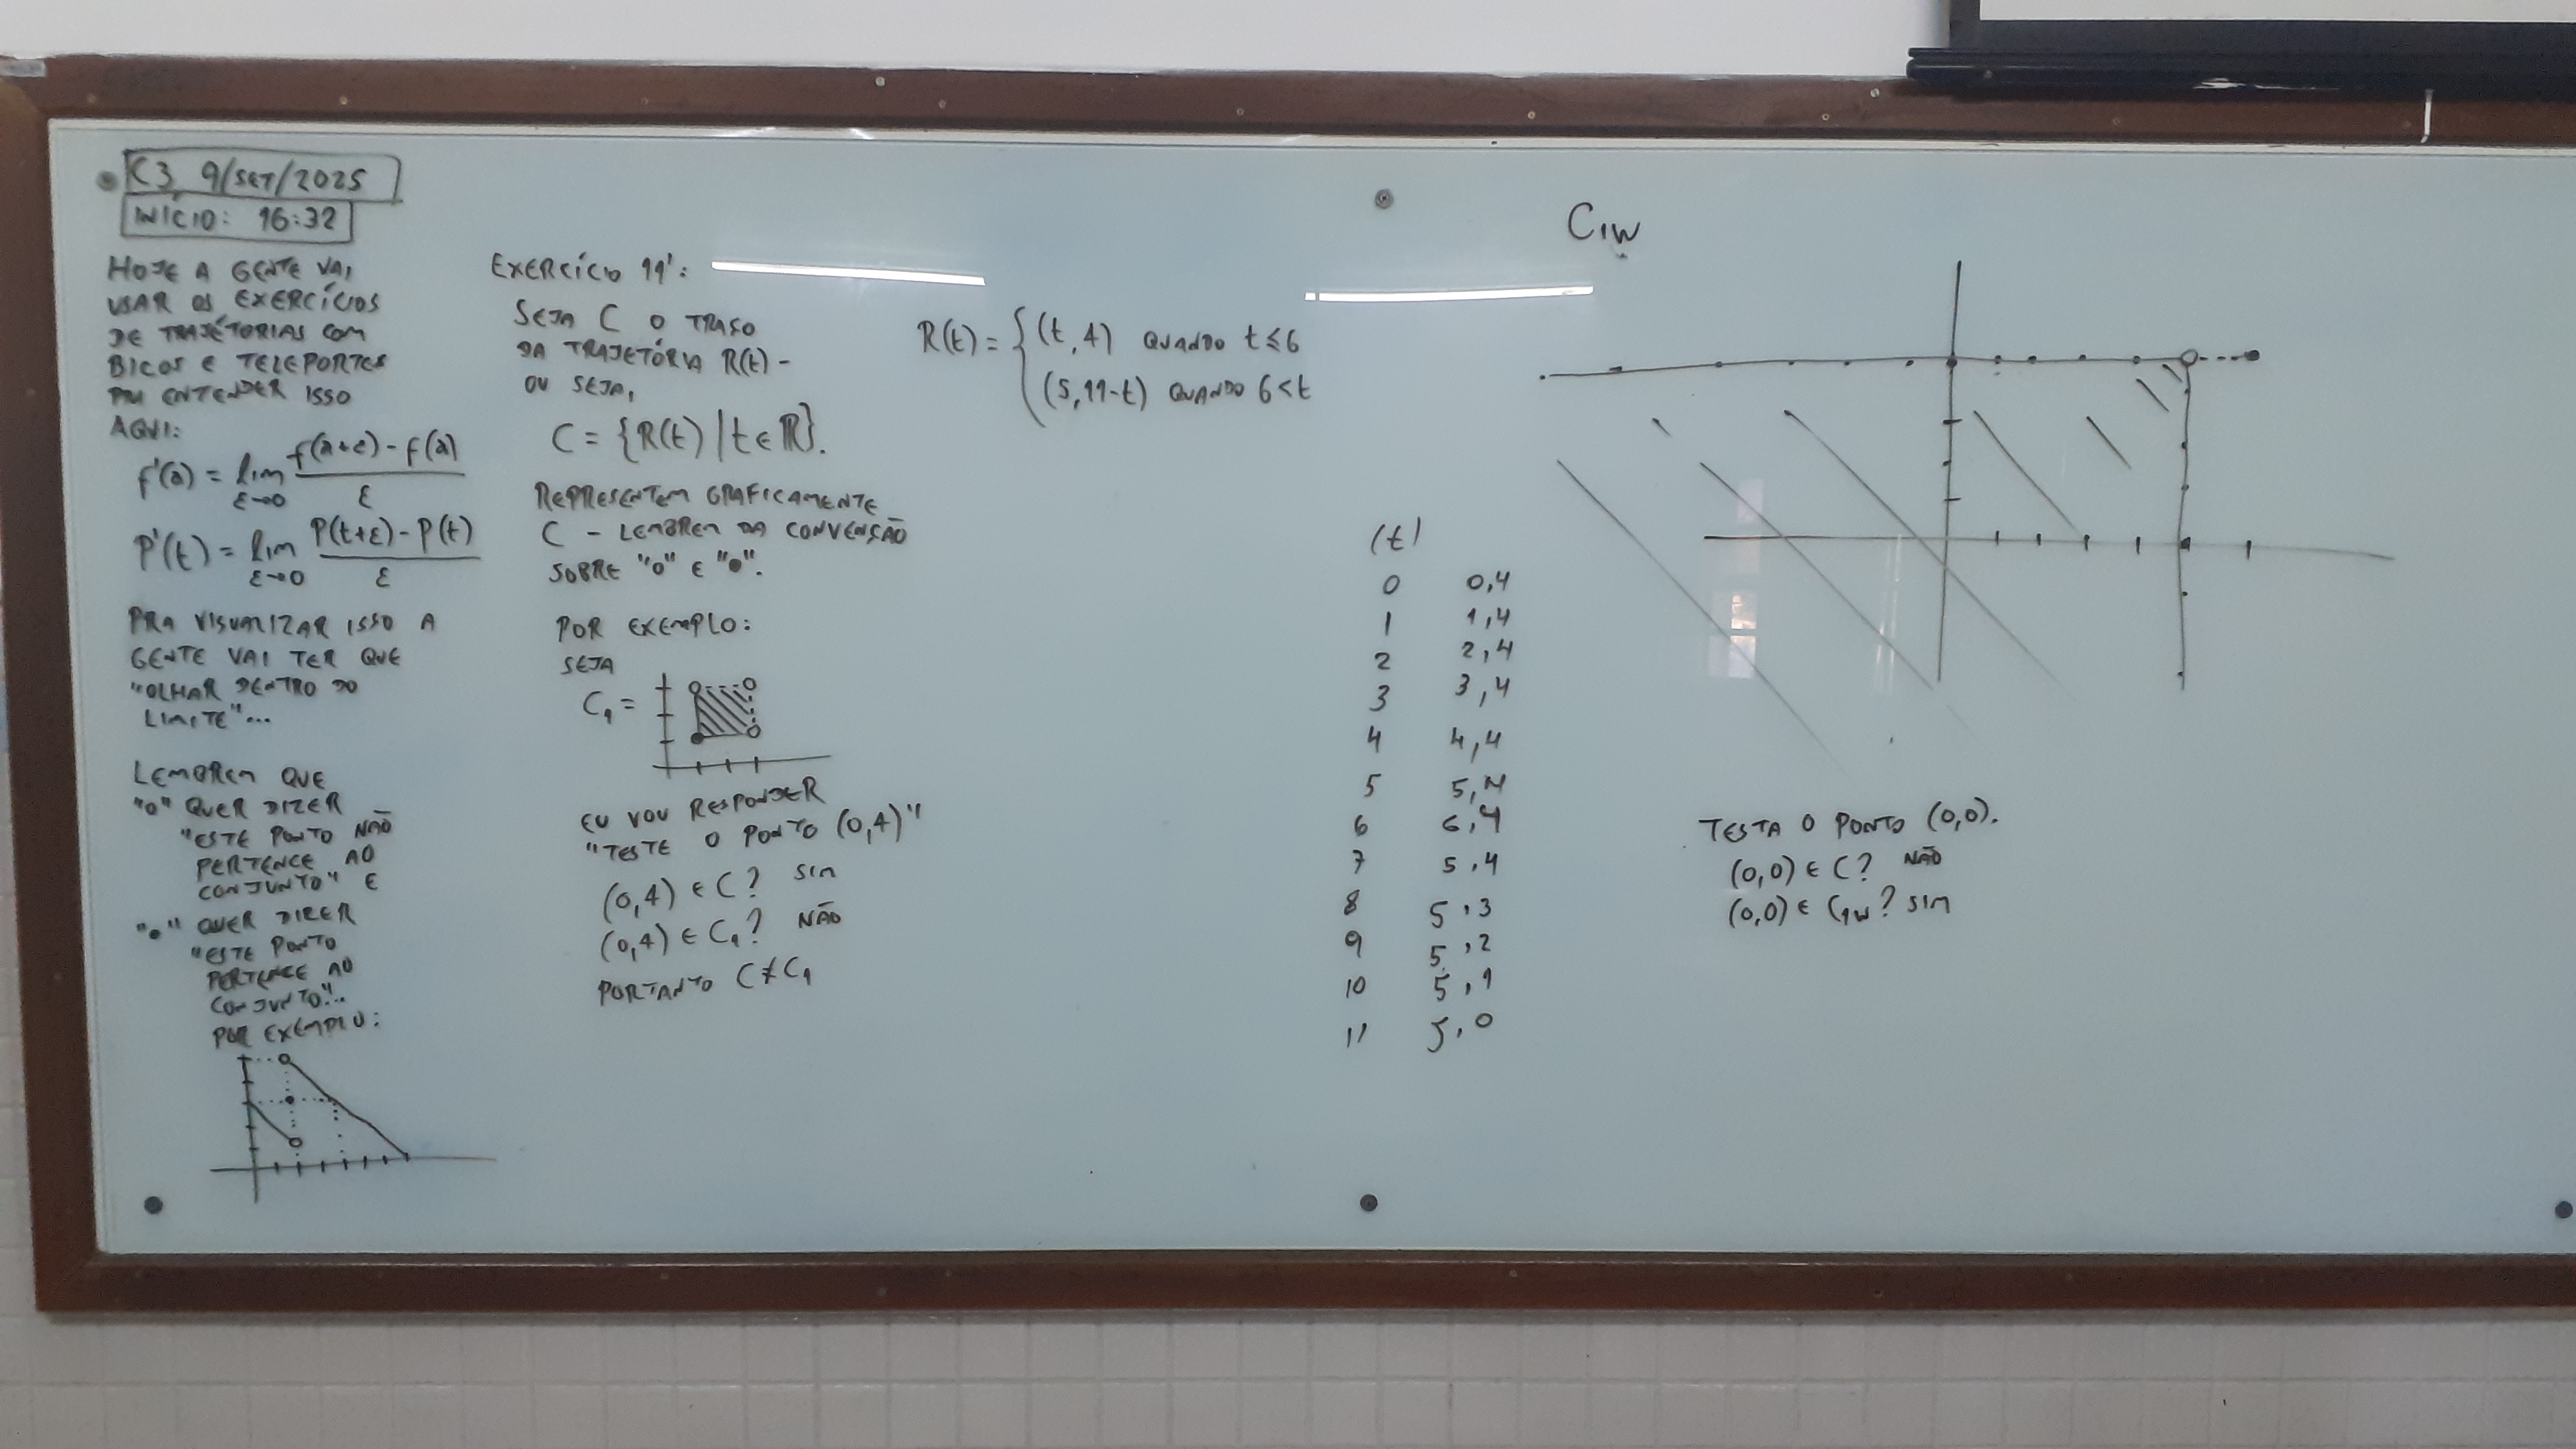 C3 9/SET/2025
INÍCIO: 16:32
HOJE A GENTE VAI
USAR OS EXERCÍCIOS
DE TRAJÉTORIAS COM
BICOS E TELEPORTES
PRA ENTENDER ISSO
AQUI:
f'(a) = lim ε→0 (f(a+ε) - f(a)) / ε
P'(t) = lim ε→0 (P(t+ε) - P(t)) / ε
PRA VISUALIZAR ISSO A
GENTE VAI TER QUE
"OLHAR DENTRO DO
LIMITE"...
LEMBREM QUE
"○" QUER DIZER
"ESTE PONTO NÃO
PERTENCE AO
CONJUNTO" E
"●" QUER DIZER
"ESTE PONTO
PERTENCE AO
CONJUNTO"...
POR EXEMPLO:
EXERCÍCIO 11':
SEJA C O TRAÇO
DA TRAJETÓRIA R(t) -
OU SEJA,
C = {R(t) | t ∈ ℝ}.
REPRESENTEM GRAFICAMENTE
C - LEMBREM DA CONVENÇÃO
SOBRE "○" E "●".
POR EXEMPLO:
SEJA
C₁ =
EU VOU RESPONDER
"TESTE O PONTO (0,4)"
(0,4) ∈ C? SIM
(0,4) ∈ C₁? NÃO
PORTANTO C ≠ C₁
R(t) = { (t,4) QUANDO t ≤ 6
(5,11-t) QUANDO 6 < t
(t)
0 0,4
1 1,4
2 2,4
3 3,4
4 4,4
5 5,4
6 6,4
7 5,4
8 5,3
9 5,2
10 5,1
11 5,0
C1W
TESTA O PONTO (0,0).
(0,0) ∈ C? NÃO
(0,0) ∈ C1W? SIM